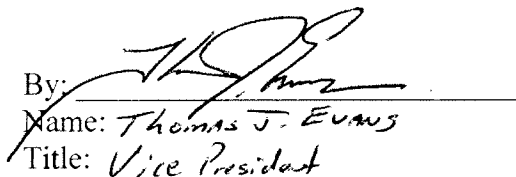 By:
Name: Thomas J. Evans
Title: Vice President